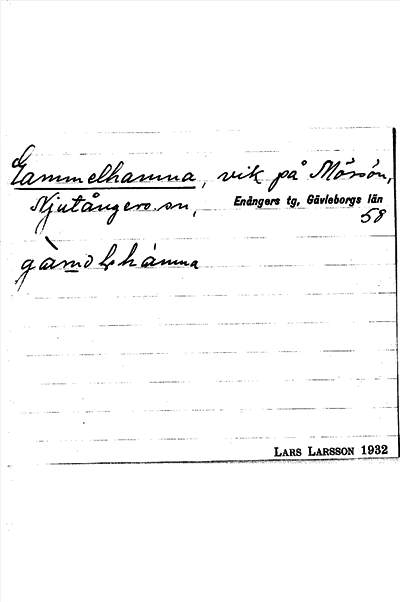 Gammelhamna, vik på Mössön,
Njutångers sn, Enångers tg, Gävleborgs län
58
LARS LARSSON 1932